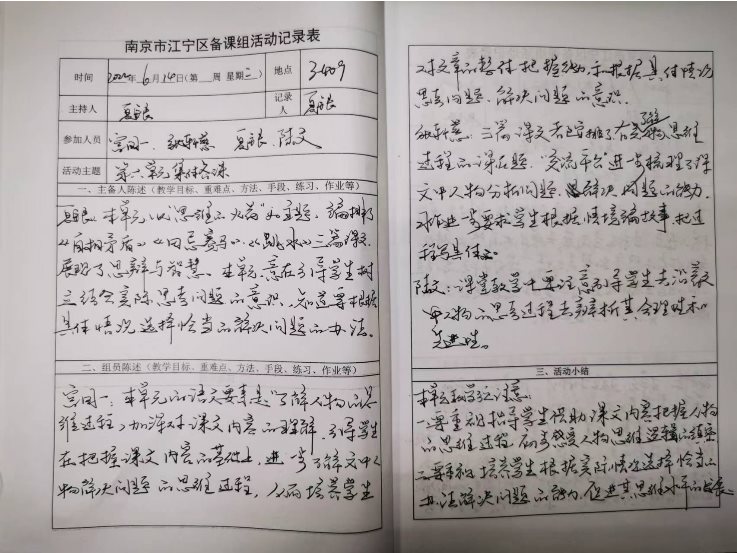 南京市江宁区备课组活动记录表
时间 2022年6月14日(第 周 星期二) 地点 3409
主持人 夏良 记录人 夏良
参加人员 宫同一、 夏良、陆文
活动主题 第六单元集体备课
一、主备人陈述(教学目标、重难点、方法、手段、练习、作业等)
夏良:本单元以“思维的火花”为主题,编排了
《自相矛盾》《田忌赛马》、《跳水》三篇课文,
展现了思辨与智慧。本单元意在引导学生树
立结合实际思考问题的意识,知道要根据
具体情况选择恰当的解决问题的办法。
二、组员陈述(教学目标、重难点、方法、手段、练习、作业等)
宫同一:本单元的语文要素是“了解人物的思
维过程,加深对课文内容的理解”,引导学生
在把握课文内容的基础上,进一步了解文中人
物解决问题的思维过程,从而培养学生
对文章的整体把握能力和根据具体情况
思考问题、解决问题的意识。
三篇课文都安排了有关人物思维
过程的课后题,“交流平台”进一步梳理了课
文中人物分析问题、解决问题的能力,
习作进一步要求学生根据情境编故事,把过
程写具体。
陆文:课堂教学中要注意引导学生去沿着文
中人物的思考过程去辨析其合理性和
先进性。
三、活动小结
本单元教学应注意:
一、要重视指导学生借助课文内容把握人物
的思维过程,从而感受人物思维逻辑的缜密
二、要重视培养学生根据实际情况选择恰当的
办法解决问题的能力,促进其思维水平的发展